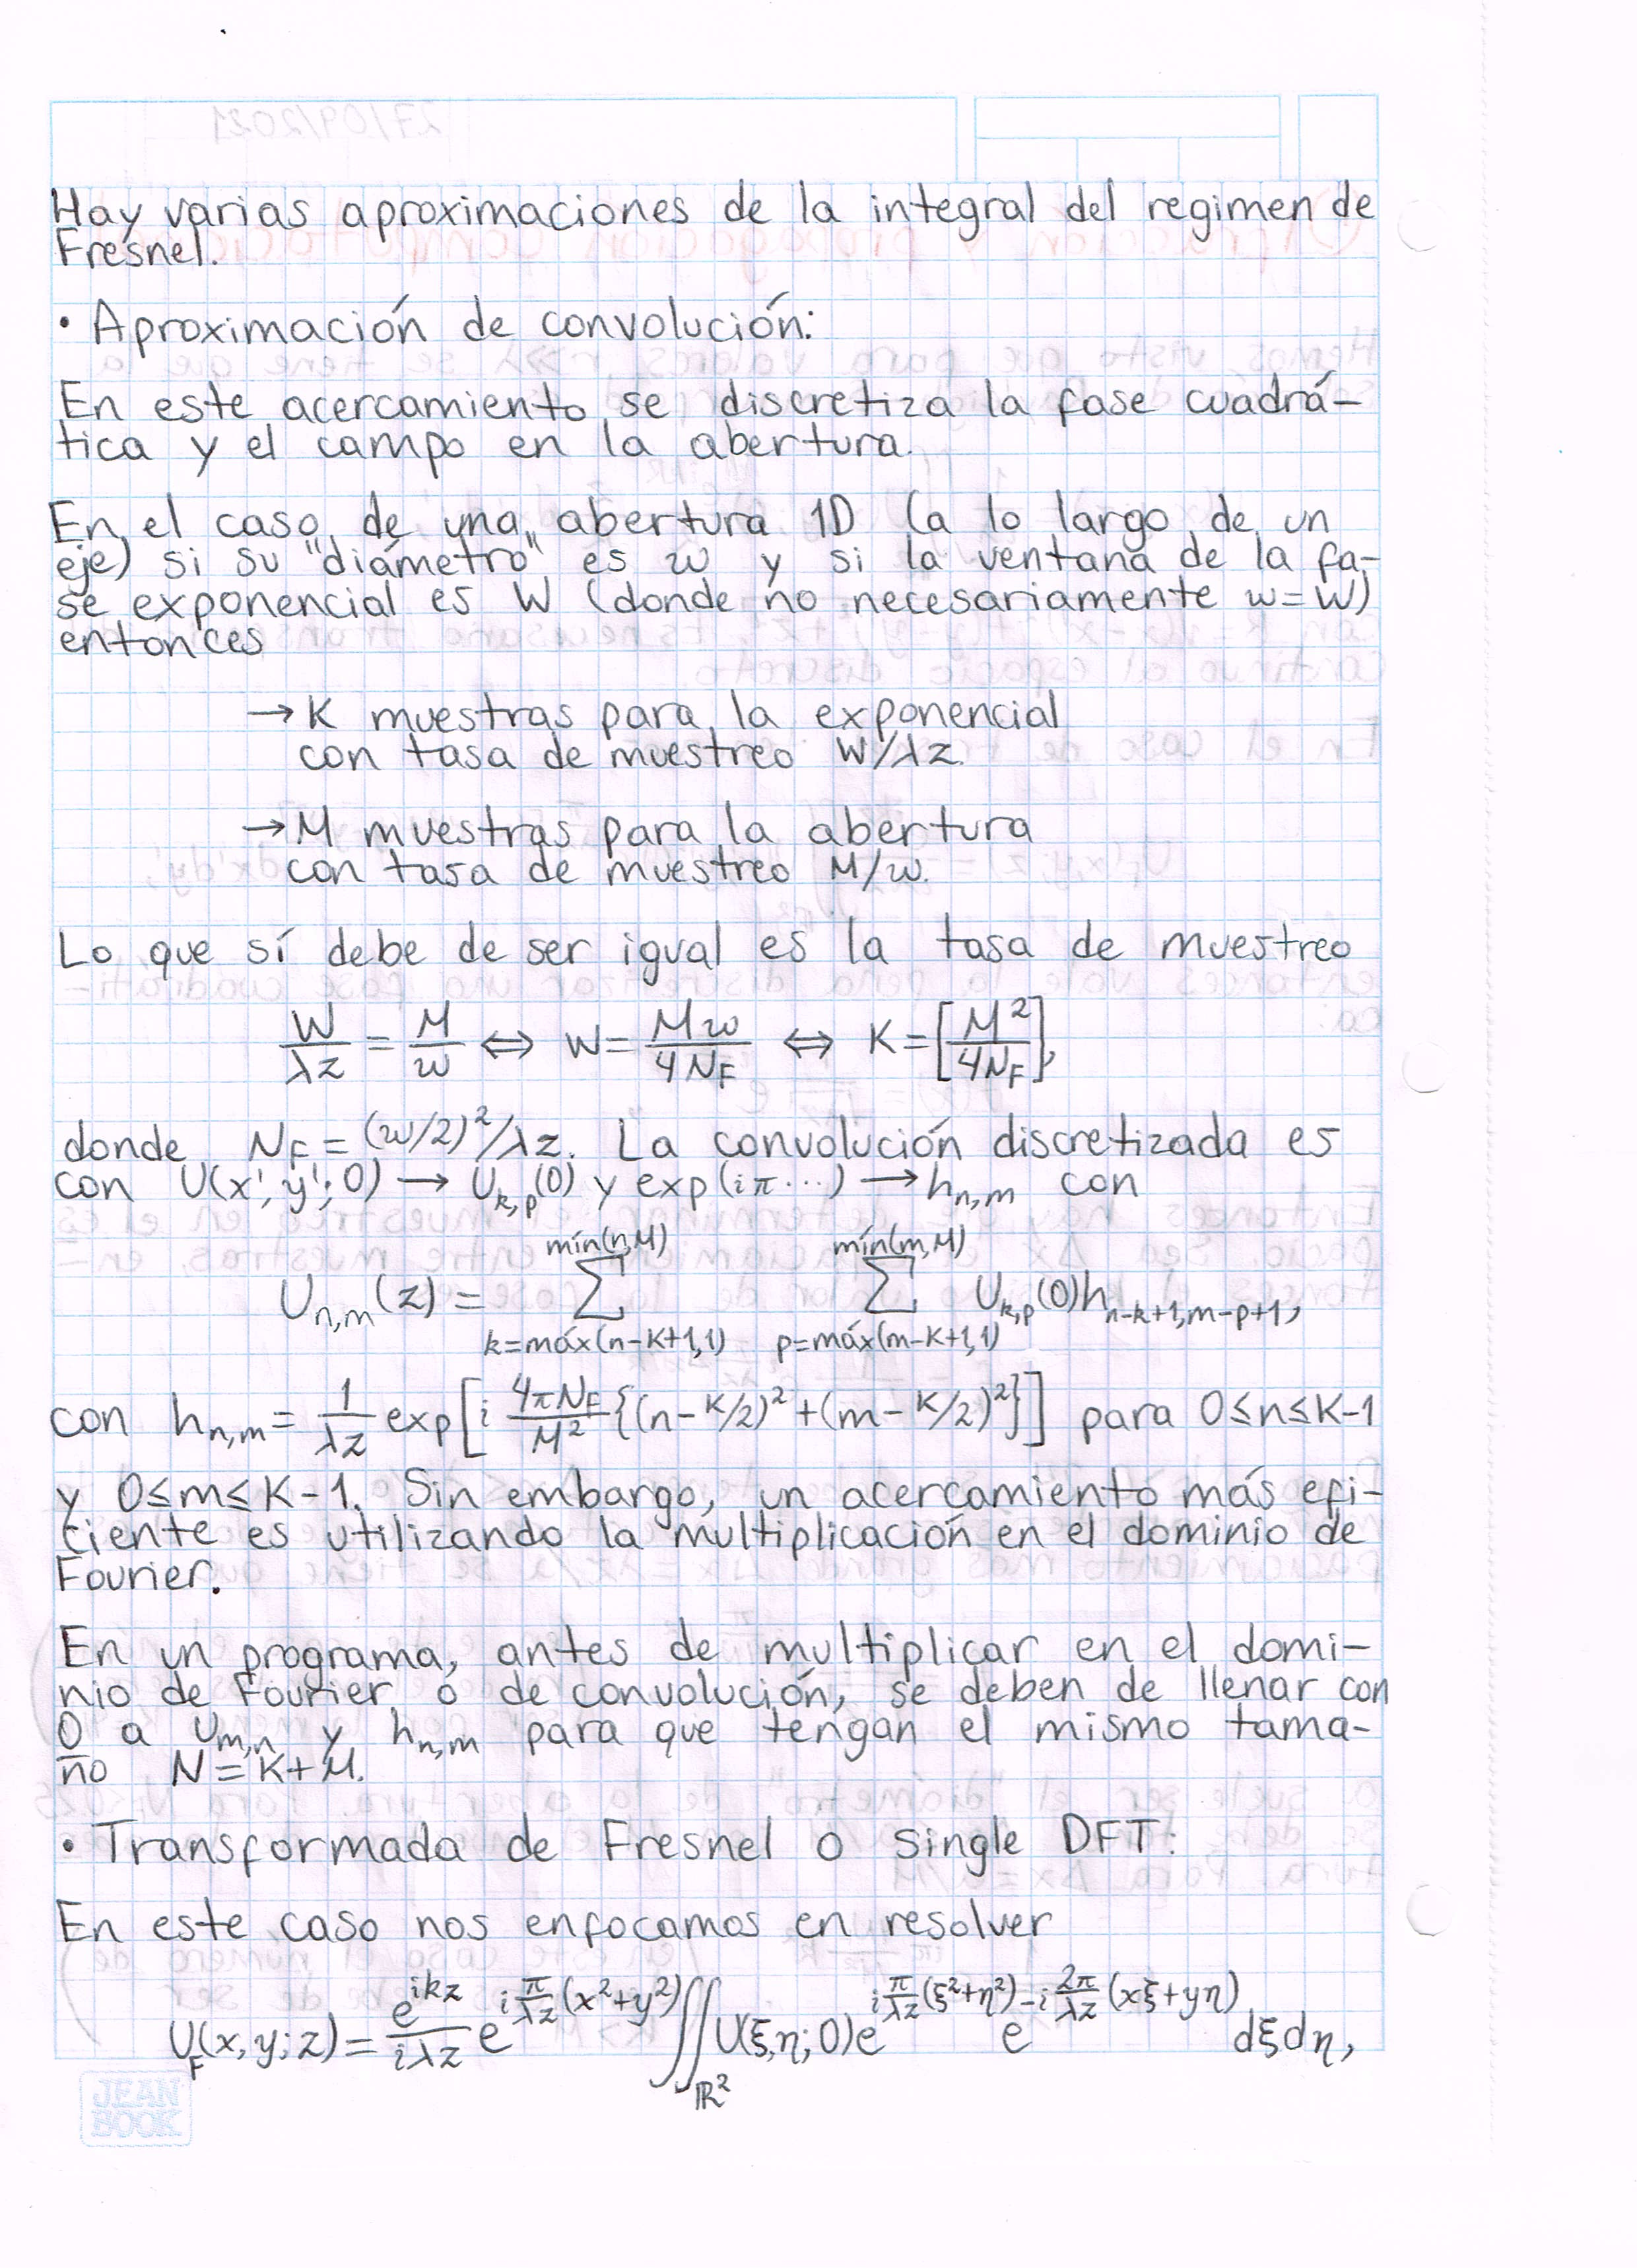 Hay varias aproximaciones de la integral del regimen de
Fresnel.
• Aproximación de convolución:
En este acercamiento se discretiza la fase cuadrá-
tica y el campo en la abertura.
En el caso de una abertura 1D (a lo largo de un
eje) si su "diámetro" es w y si la ventana de la fa-
se exponencial es W (donde no necesariamente w=W)
entonces
→ K muestras para la exponencial
con tasa de muestreo W/λz.
→ M muestras para la abertura
con tasa de muestreo M/w.
Lo que sí debe de ser igual es la tasa de muestreo
W/λz = M/w ⇔ W = Mw/4N_F ⇔ K = [M²/4N_F],
donde N_F = (w/2)²/λz. La convolución discretizada es
con U(x',y';0) → U_{k,p}(0) y exp(iπ...) → h_{n,m} con
U_{n,m}(z) = Σ_{k=máx(n-K+1,1)}^{mín(n,M)} Σ_{p=máx(m-K+1,1)}^{mín(m,M)} U_{k,p}(0)h_{n-k+1,m-p+1},
con h_{n,m} = 1/λz exp[i 4πN_F/M² {(n-K/2)²+(m-K/2)²}] para 0≤n≤K-1
y 0≤m≤K-1. Sin embargo, un acercamiento más efi-
ciente es utilizando la multiplicación en el dominio de
Fourier.
En un programa, antes de multiplicar en el domi-
nio de Fourier o de convolución, se deben de llenar con
0 a U_{m,n} y h_{n,m} para que tengan el mismo tama-
ño N=K+M.
• Transformada de Fresnel o single DFT:
En este caso nos enfocamos en resolver
U_F(x,y;z) = e^{ikz}/iλz e^{i π/λz (x²+y²)} ∬_{ℝ²} U(ξ,η;0)e^{i π/λz (ξ²+η²)} e^{-i 2π/λz (xξ+yη)} dξdη,
JEAN
BOOK